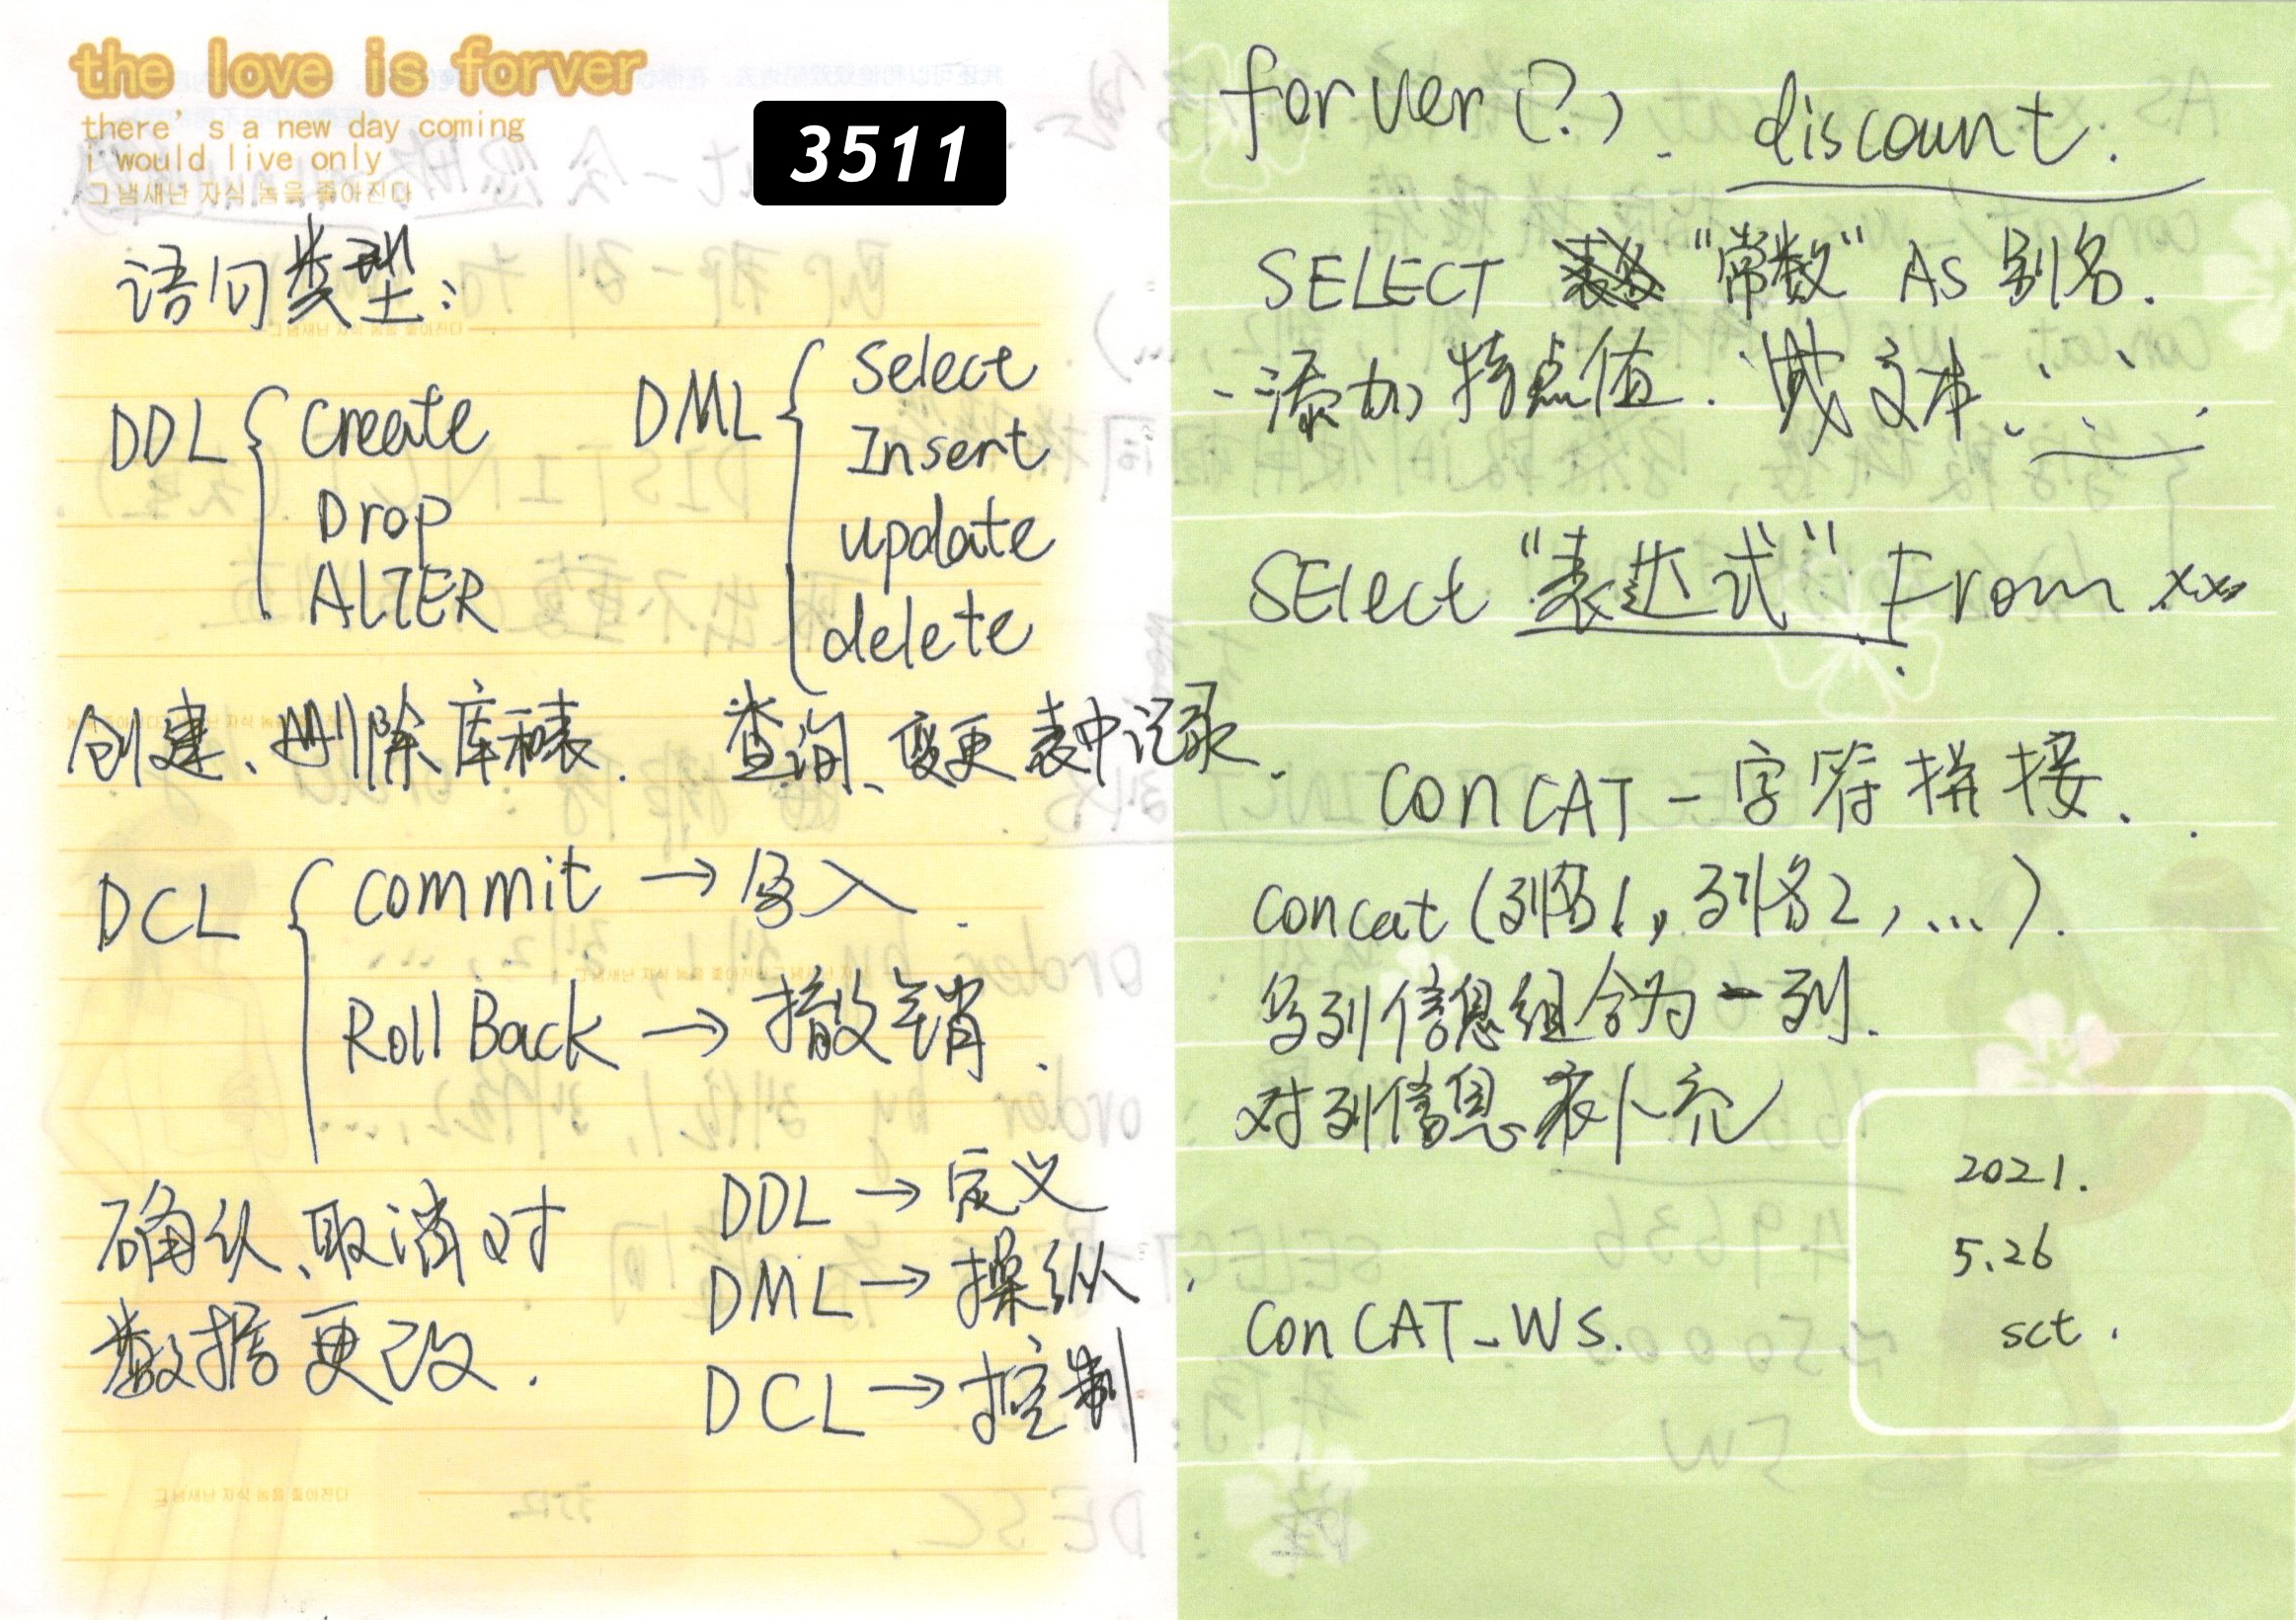 the love is forver
there's a new day coming
i would live only
그 냄새난 자식 놈을 좋아진다
3511
语句类型:
DDL { Create
Drop
ALTER
DML { Select
Insert
update
delete
创建、删除库和表.
查询、变更表中记录.
DCL { commit → 写入.
Roll Back → 撤销.
确认、取消对
数据更改.
DDL → 定义
DML → 操纵
DCL → 控制
forver(?). discount.
SELECT "常数" As 别名.
-添加特点值. 或文本.
SElect "表达式" From xxx
conCAT - 字符拼接.
concat (列名1, 列名2, ...).
多列信息组合为一列.
对列信息来补充
ConCAT_Ws.
2021.
5.26
sct.